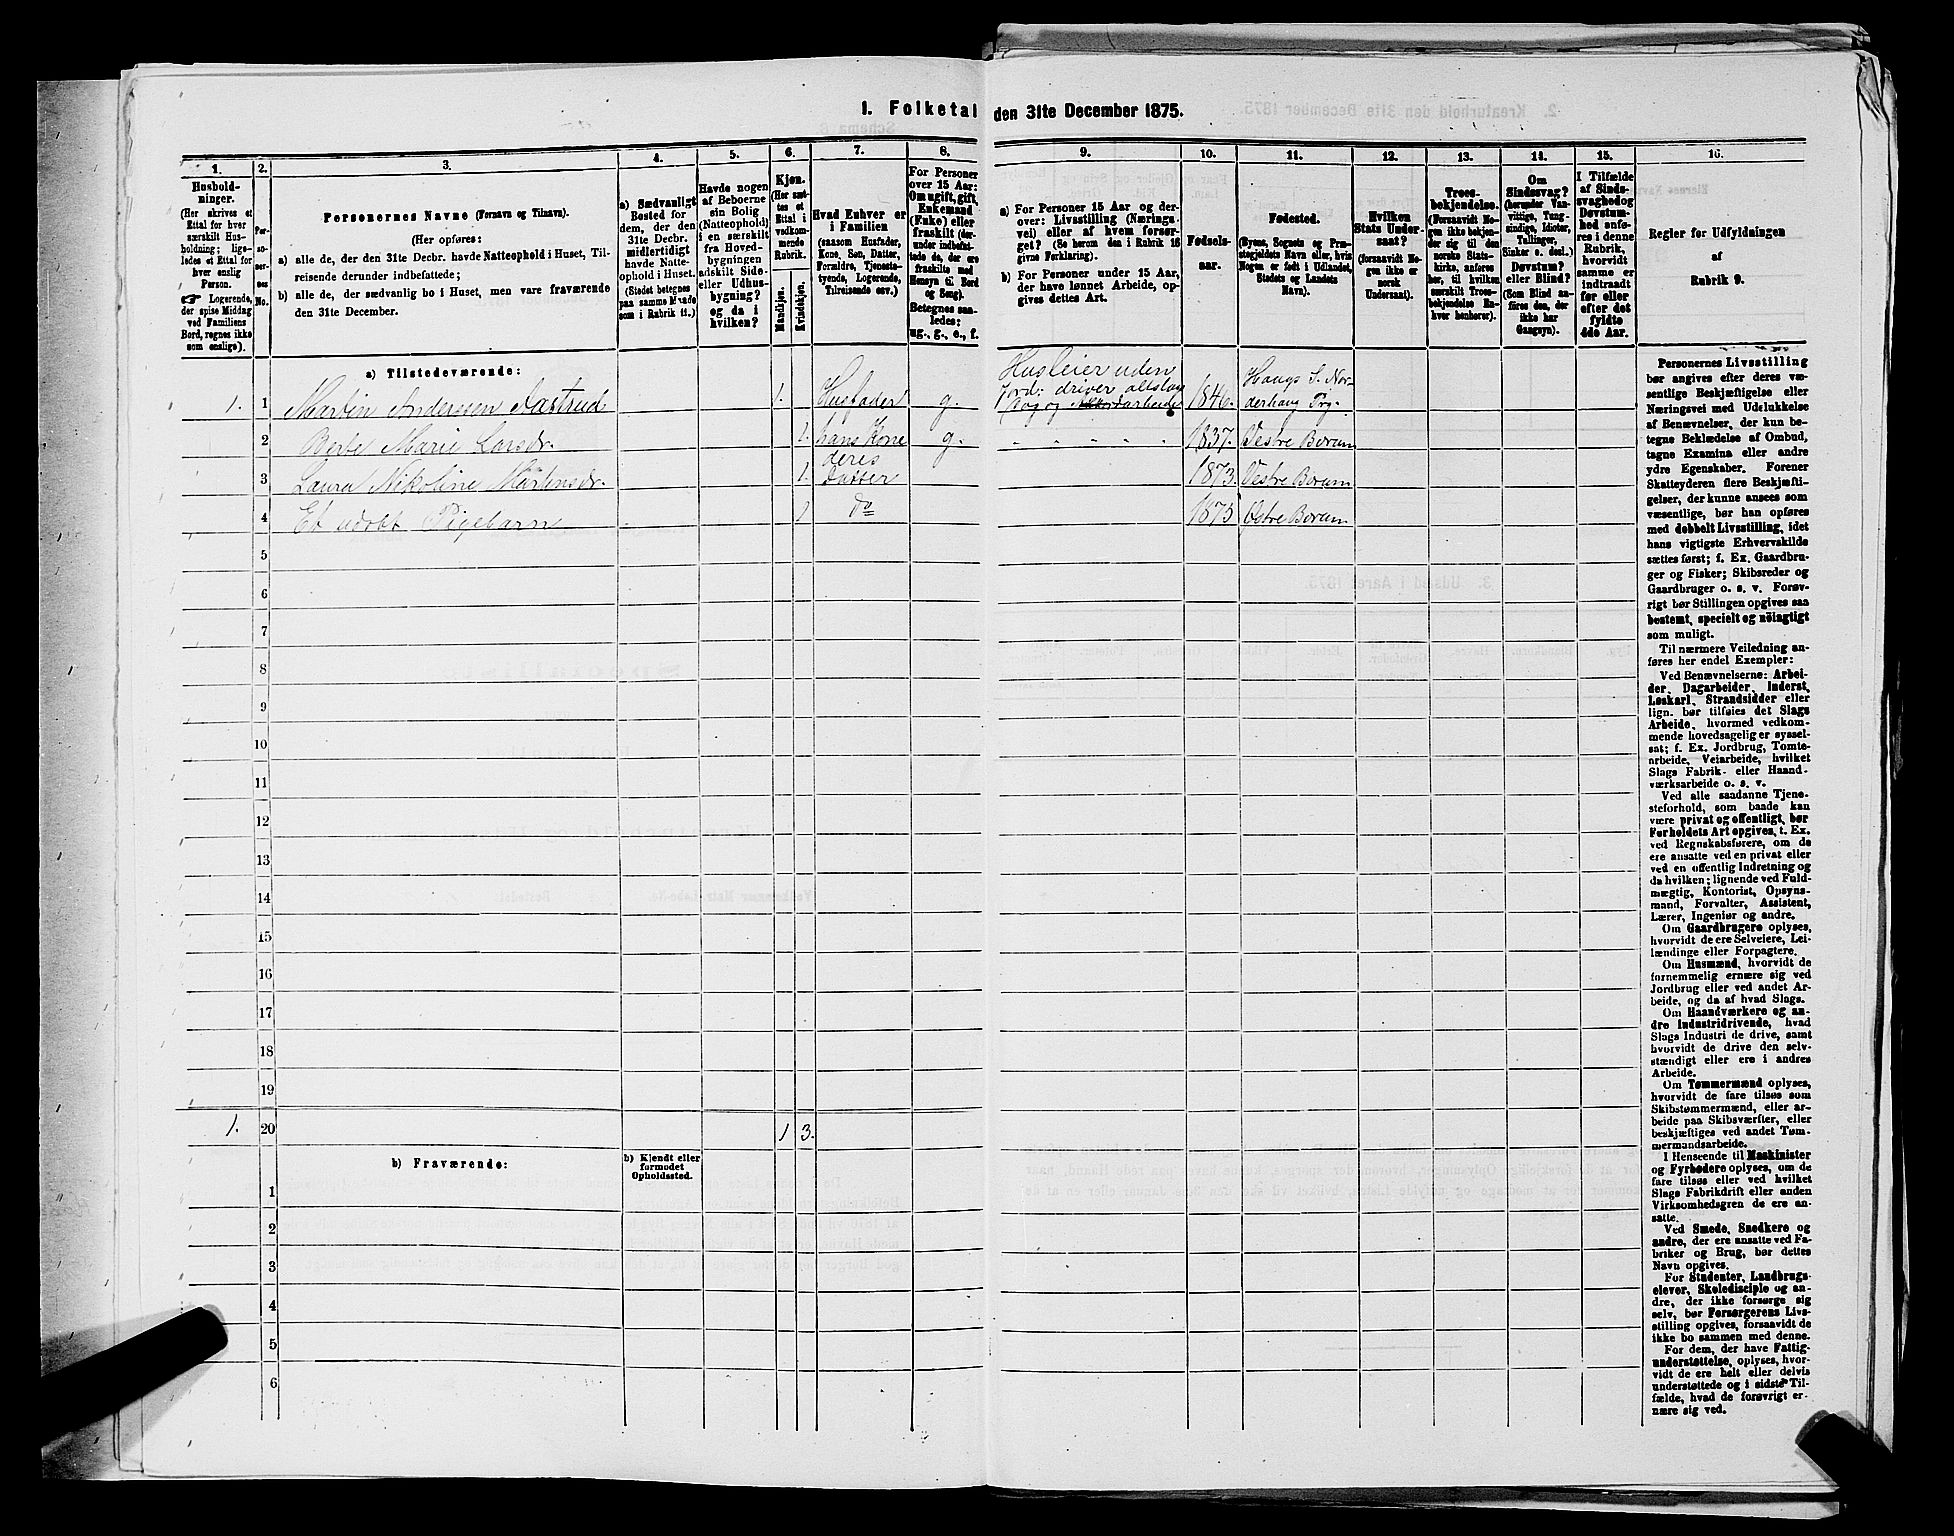 1. Folketal den 31te December 1875.
1.
2.
3.
4.
5.
6.
7.
8.
9.
10.
11.
12.
13.
14.
15.
16.
Hushold-
ninger.
(Her skrives et
Ettal for hver
særskilt Hus-
holdning; lige-
ledes et Ettal for
hver enslig
Person.
☛ Logerende,
der spise Middag
ved Familiens
Bord, regnes ikke
som enslige).
Per-
so-
ner-
nes
No.
Personernes Navne (Fornavn og Tilnavn).
(Her opføres:
a) alle de, der den 31te Decbr. havde Natteophold i Huset, Til-
reisende derunder indbefattede;
b) alle de, der sædvanlig bo i Huset, men vare fraværende
den 31te December.
a) Sædvanligt
Bosted for
dem, der den
31te Decbr.
midlertidigt
havde Natte-
ophold i Huset.
(Stedet betegnes
paa samme Maade
som i Rubrik 11.)
Havde nogen
af Beboerne
sin Bolig
(Natteophold)
i en særskilt
fra Hoved-
bygningen
adskilt Side-
eller Udhus-
bygning?
og da i
hvilken?
Kjøn.
(Her sæt-
tes et
Ettal i
vedkom-
mende
Rubrik.
Mandkjøn.
Kvindekjøn.
Hvad Enhver er
i Familien
(saasom Husfader,
Kone, Søn, Datter,
Forældre, Tjeneste-
tyende, Logerende,
Tilreisende osv.)
For Personer
over 15 Aar:
Om ugift, gift,
Enkemand
(Enke) eller
fraskilt (der-
under indbefat-
tede de, der ere
fraskilte med
Hensyn til Bord
og Seng).
Betegnes saa-
ledes:
ug., g., e., f.
a) For Personer 15 Aar og der-
over: Livsstilling (Nærings-
vei) eller af hvem forsør-
get? (Se herom den i Rubrik 16
givne Forklaring).
b) For Personer under 15 Aar,
der have lønnet Arbeide, op-
gives dettes Art.
Fødsels-
aar.
Fødested.
(Byens, Sognets og Præ-
stegjeldets Navn eller, hvis
Nogen er født i Udlandet,
Stedets og Landets
Navn).
Hvilken
Stats Under-
saat?
(forsaavidt No-
gen ikke er
norsk
Undersaat).
Troes-
bekjendelse.
(Forsaavidt No-
gen ikke bekjen-
der sig til den
norske Stats-
kirke, anføres
her, til hvilken
særskilt Troes-
bekjendelse En-
hver henhører).
Om
Sindssvag?
(herunder Van-
vittige, Tung-
sindige, Idioter,
Tullinger,
Sinker o. desl.)
Døvstum?
eller Blind?
(Som Blind an-
føres den, der
ikke har
Gangsyn).
I Tilfælde
af Sinds-
svaghed og
Døvstum-
hed anfø-
res i denne
Rubrik,
hvorvidt
samme er
indtraadt
før eller
efter det
fyldte
4de Aar.
Regler for Udfyldningen
af
Rubrik 9.
a) Tilstedeværende:
1. 1 Martin Anderssen Aastrud 1. Husfader g.
Husleier uden
Jord: driver
og
1846. Haugs S. Nor-
derhaug Prg.
2 Berte Marie Larsdr. 1. hans Kone g. - - - - - 1837. Vestre Bærum
3 Laura Nikoline Martinsdr. 1. deres
datter 1873. Vestre Bærum
4 Et udøbt Pigebarn 1 do 1875 Vestre Bærum
5
6
7
8
9
10
11
12
13
14
15
16
17
18
19
1. 20 1 3.
b) Fraværende:
b) Kjendt eller
formodet
Opholdssted.
1
2
3
4
5
6
Personernes Livsstilling
bør angives efter deres væ-
sentlige Beskjæftigelse eller
Næringsvei med Udelukkelse
af Benævnelser, der kun be-
tegne Beklædelse af Ombud,
tagne Examina eller andre
ydre Egenskaber. Forener
Skatteyderen flere Beskjæfti-
gelser, der kunne ansees som
væsentlige, bør han opføres
med dobbelt Livsstilling, idet
hans vigtigste Erhvervskilde
sættes først; f. Ex. Gaardbru-
ger og Fisker; Skibsreder og
Gaardbruger o. s. v. Forøv-
rigt bør Stillingen opgives saa
bestemt, specielt og nöiagtigt
som muligt.
Til nærmere Veiledning an-
føres her endel Exempler:
Ved Benævnelserne: Arbei-
der, Dagarbeider, Inderst,
Løskarl, Strandsidder eller
lign. bør tilføies det Slags
Arbeide, hvormed vedkom-
mende hovedsagelig er syssel-
sat; f. Ex. Jordbrug, Tomte-
arbeide, Veiarbeide, hvilket
Slags Fabrik- eller Haand-
værksarbeide o. s. v.
Ved alle saadanne Tjene-
steforhold, som baade kan
være privat og offentligt, bør
Forholdets Art opgives, t. Ex.
ved Regnskabsførere, om de
ere ansatte ved en privat eller
ved en offentlig Indretning og
da hvilken; lignende ved Fuld-
mægtig, Kontorist, Opsyns-
mand, Forvalter, Assistent,
Lærer, Ingeniør og andre.
Om Gaardbrugere oplyses,
hvorvidt de ere Selveiere, Lei-
lændinge eller Forpagtere.
Om Husmænd, hvorvidt de
fornemmelig ernære sig ved
Jordbrug eller ved andet Ar-
beide, og da af hvad Slags.
Om Haandværkere og an-
dre Industridrivende, hvad
Slags Industri de drive, samt
hvorvidt de drive den selv-
stændigt eller ere i andres
Arbeide.
Om Tømmermænd oplyses,
hvorvidt de fare tilsøs som
Skibstømmermænd, eller ar-
beide paa Skibsværfter, eller
beskjæftiges ved andet Tøm-
mermandsarbeide.
I Henseende til Maskinister
og Fyrbødere oplyses, om de
fare tilsøs eller ved hvilket
Slags Fabrikdrift eller anden
Virksomhedsgren de ere an-
satte.
Ved Smede, Snedkere og
andre, der ere ansatte ved Fa-
briker og Brug, bør dettes
Navn opgives.
For Studenter, Landbrugs-
elever, Skoledisciple og an-
dre, der ikke forsørge sig
selv, bør Forsørgerens Livs-
stilling opgives, forsaavidt de
ikke bo sammen med denne.
For dem, der have Fattig-
understøttelse, oplyses, hvor-
vidt de ere helt eller delvis
understøttede og i sidste Til-
fælde, hvad de forøvrigt er-
nære sig ved.